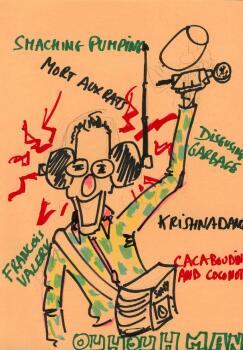 SMACHING PUMPING
MORT AUX RATS
DISGUSING
GARBAGE
KRISHNADAR
FRANÇOIS
VALERY
CACABOUDIN
AND COCONUT
OUYOUYMAN